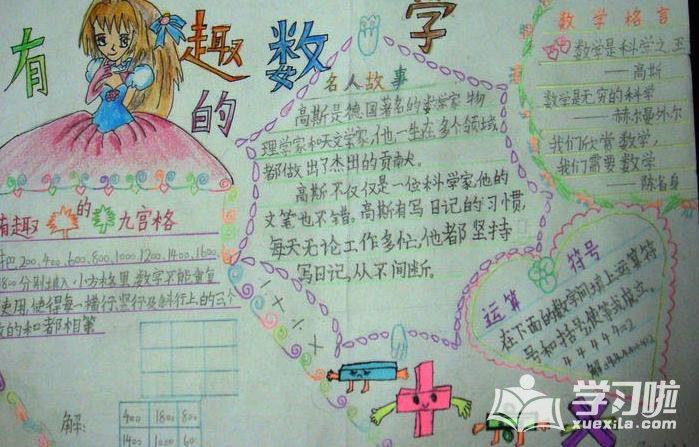 有趣的数字
名人故事
高斯是德国著名的数学家、物
理学家和天文学家,他一生在多个领域
都做出了杰出的贡献。
高斯不仅仅是一位科学家,他的
文笔也不错。高斯有写日记的习惯,
每天无论工作多忙,他都坚持
写日记,从不间断。
数学格言
数学是科学之王
——高斯
数学是无穷的科学
——赫尔曼外尔
我们欣赏数学,
我们需要数学
——陈省身
有趣的九宫格
把200、400、600、800、1000、1200、1400、1600、
1800分别填入小方格里,数字不能重复
使用,使得每一横行、竖行及斜行上的三个
数的和都相等
解:
400 1800 800
1400 1000 60
运算符号
在下面的数字间填上运算符
号和括号,使等式成立。
4 4 4 4=2
学习啦
xuexila.com